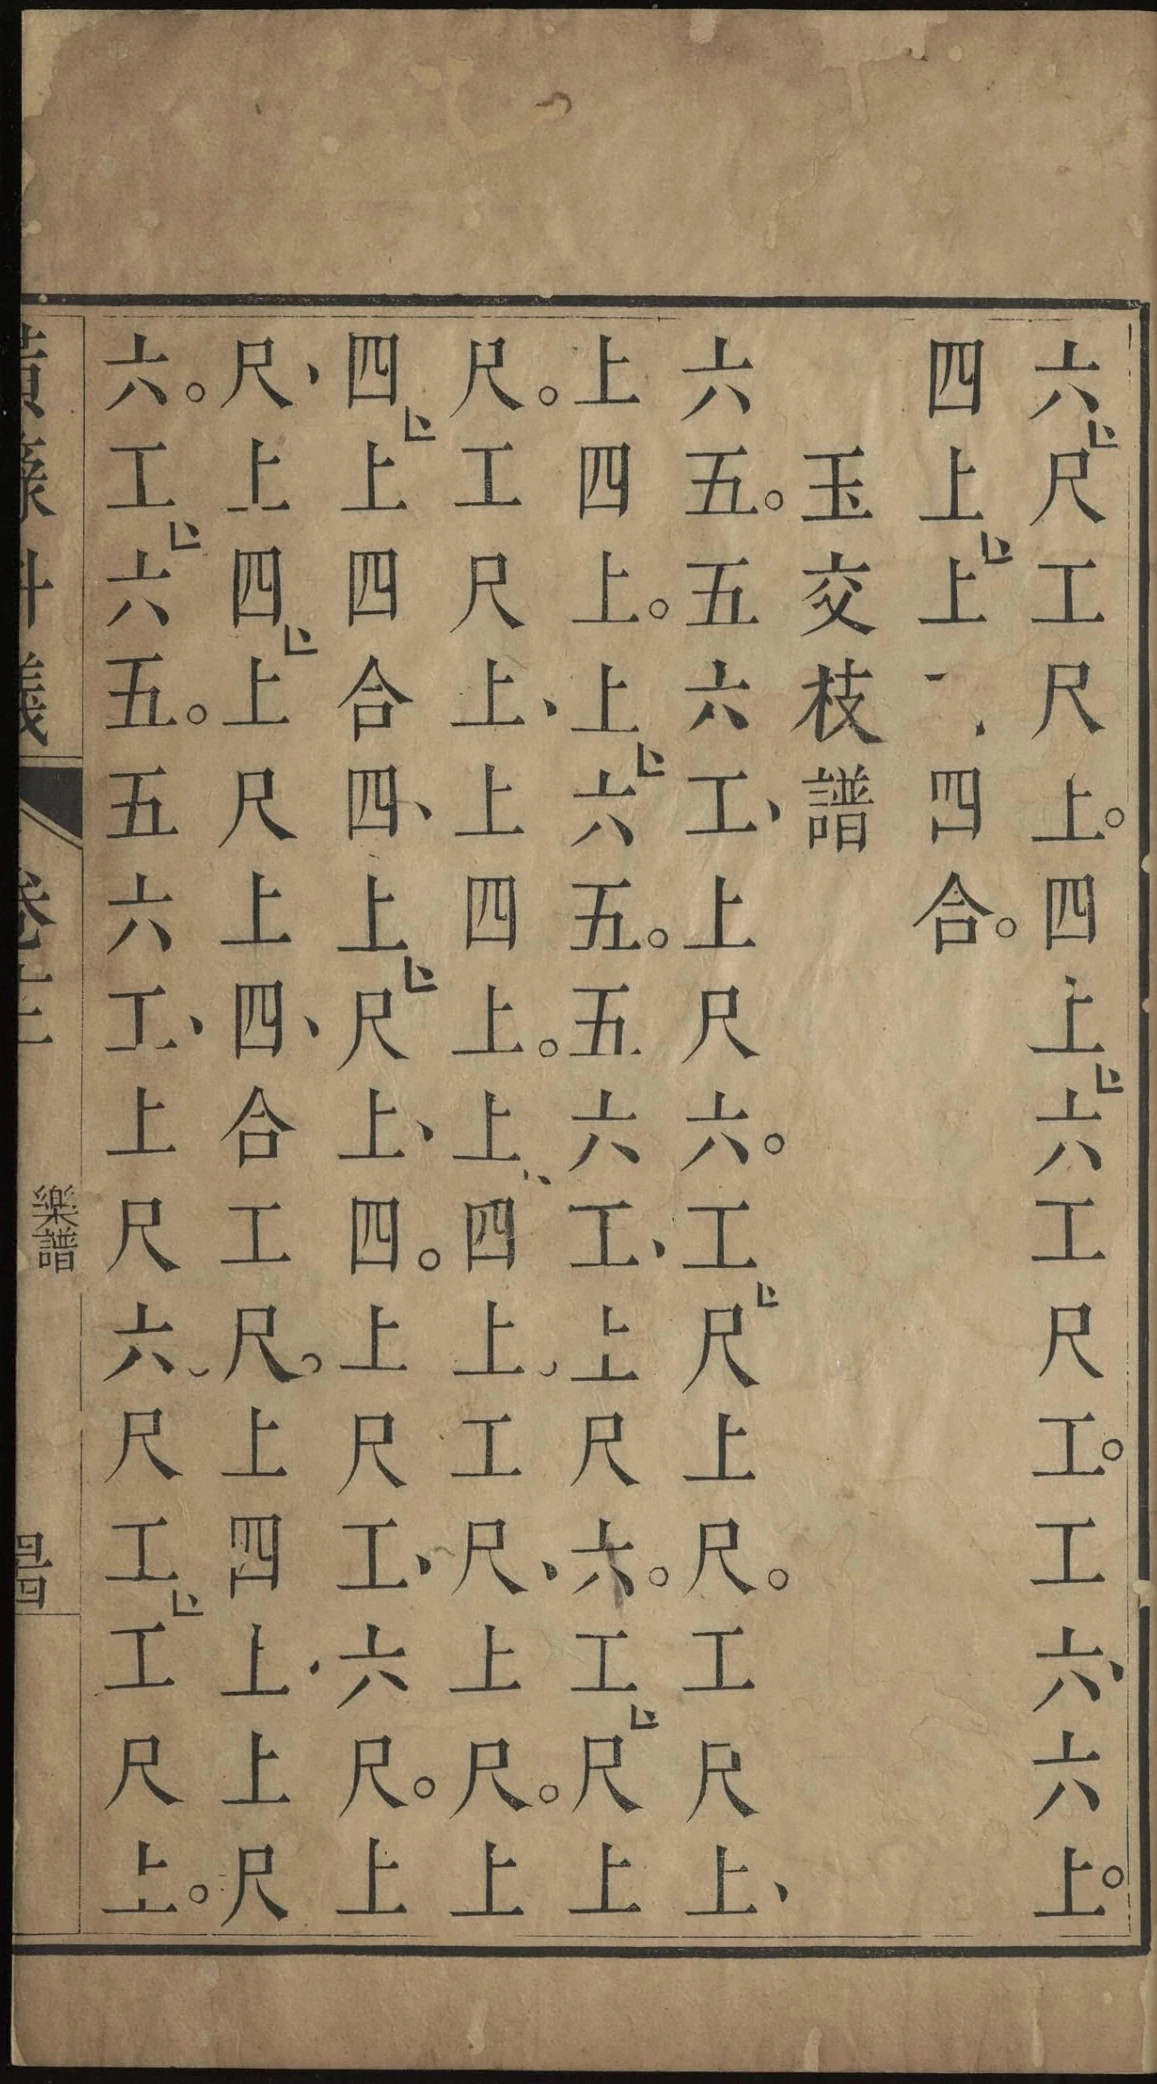 六尺工尺上。四上六工尺工。工六、六上。
四上上四合。
玉交枝譜
六五。五六工、上尺六。工尺上尺。工尺上、
上四上。上六五。五六工、上尺六。工尺上
尺。工尺上、上四上。上四上。工尺、上尺。上
四上四合四、上尺上、四。上尺工、六尺。上
尺、上四上尺上四、合工尺。上四上、上尺
六。工六五。五六工、上尺六。尺工工尺上。
樂譜